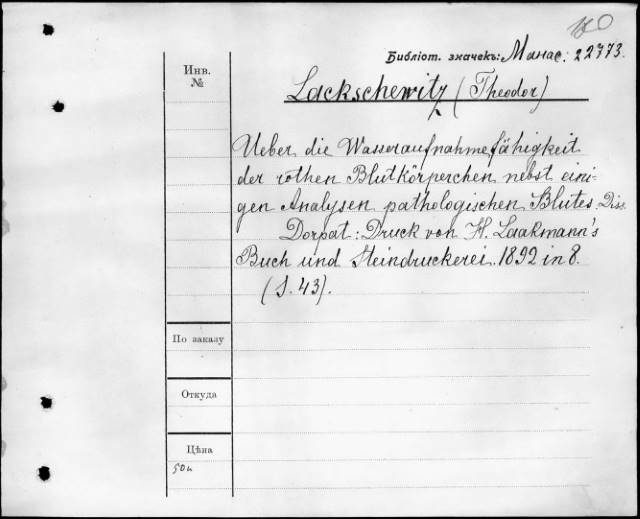 Библіот. значекъ: Манас: 22773.
Инв.
№
Lackschewitz (Theodor)
Ueber die Wasseraufnahmefähigkeit
der rothen Blutkörperchen nebst eini-
gen Analysen pathologischen Blutes. Diss.
Dorpat: Druck von H. Laakmann's
Buch und Steindruckerei. 1892 in 8.
(S. 43).
По заказу
Откуда
Цѣна
50к